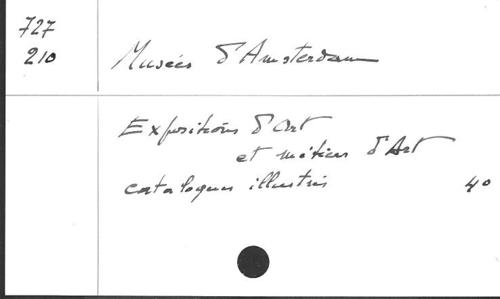 727
210
Musées d'Amsterdam
Expositions d'Art
et métiers d'Art
catalogues illustrés
40